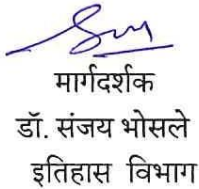 मार्गदर्शक
डॉ. संजय भोसले
इतिहास विभाग